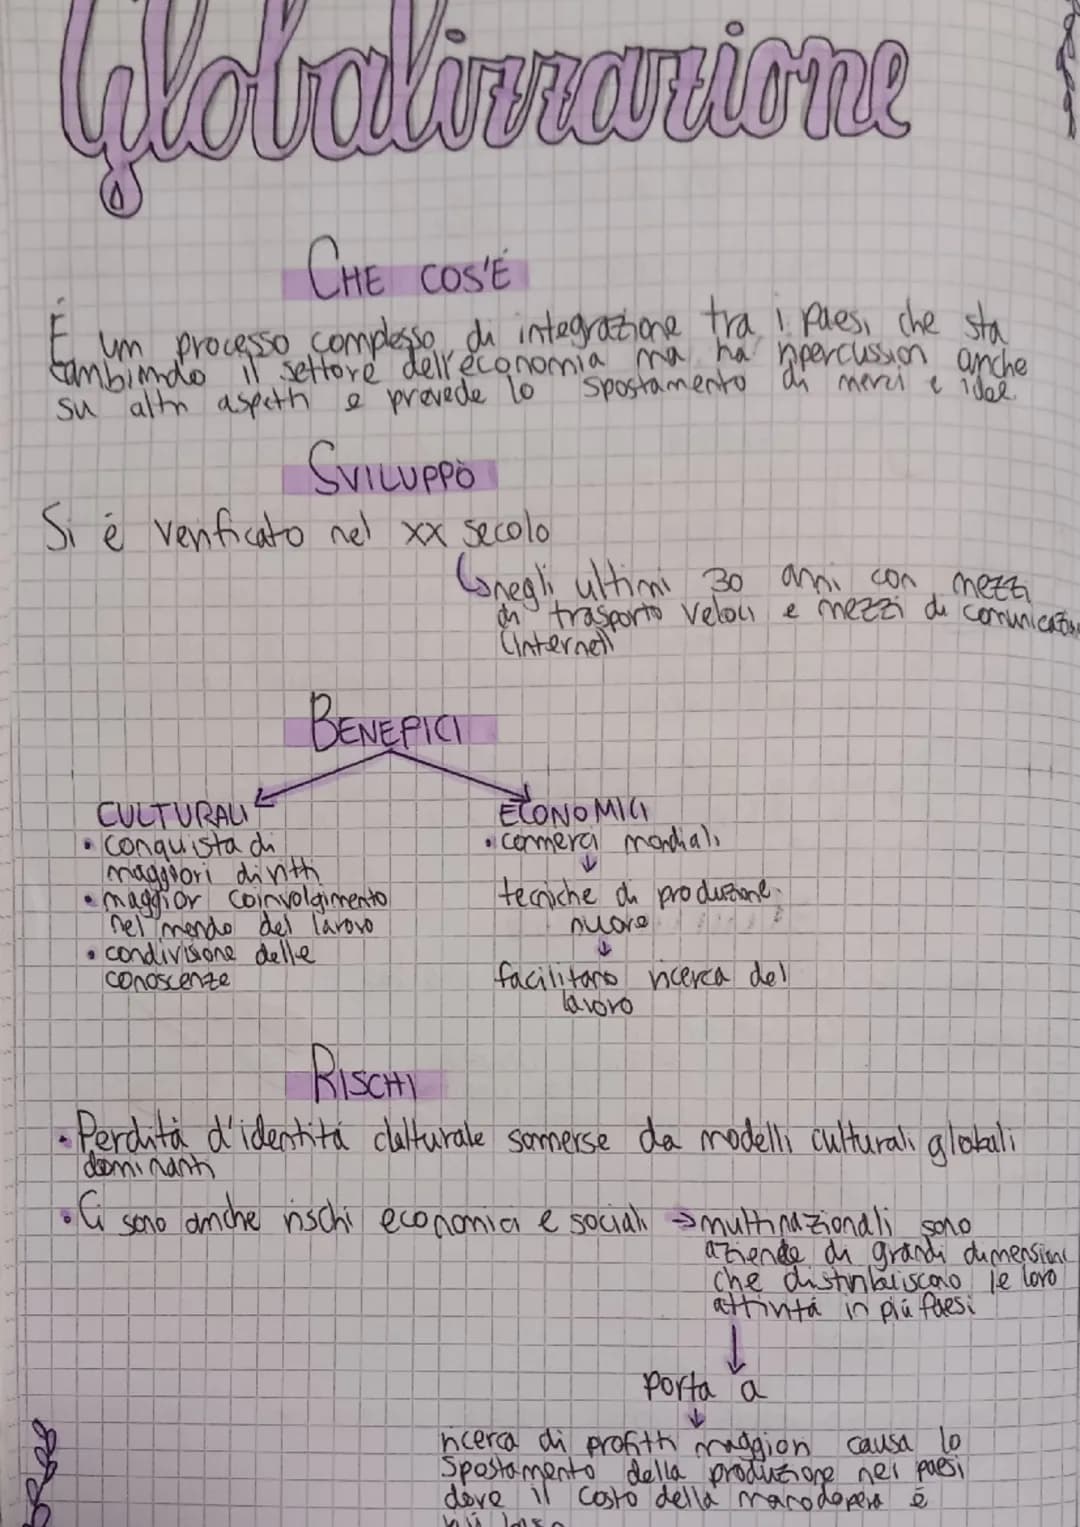 Globalizzazione
CHE COS'É
É un processo complesso di integrazione tra i paesi che sta
cambiando il settore dell'economia ma ha ripercussioni anche
su altri aspetti e prevede lo spostamento di merci e idee.
SVILUPPO
Si é verificato nel XX secolo
negli ultimi 30 anni con mezzi
di trasporto veloci e mezzi di comunicazione
(Internet)
BENEFICI
CULTURALI
• conquista di
maggiori diritti
• maggior coinvolgimento
nel mondo del lavoro
• condivisione delle
conoscenze
ECONOMICI
• commerci mondiali
↓
tecniche di produzione
nuove
↓
facilitano ricerca del
lavoro
RISCHI
• Perditá d'identitá culturale sommerse da modelli culturali globali
dominanti
• Ci sono anche rischi economici e sociali → multinazionali sono
aziende di grandi dimensioni
che distribuiscono le loro
attivitá in piú Paesi
↓
porta a
↓
ricerca di profitti maggiori causa lo
spostamento della produzione nei paesi
dove il costo della manodopera é